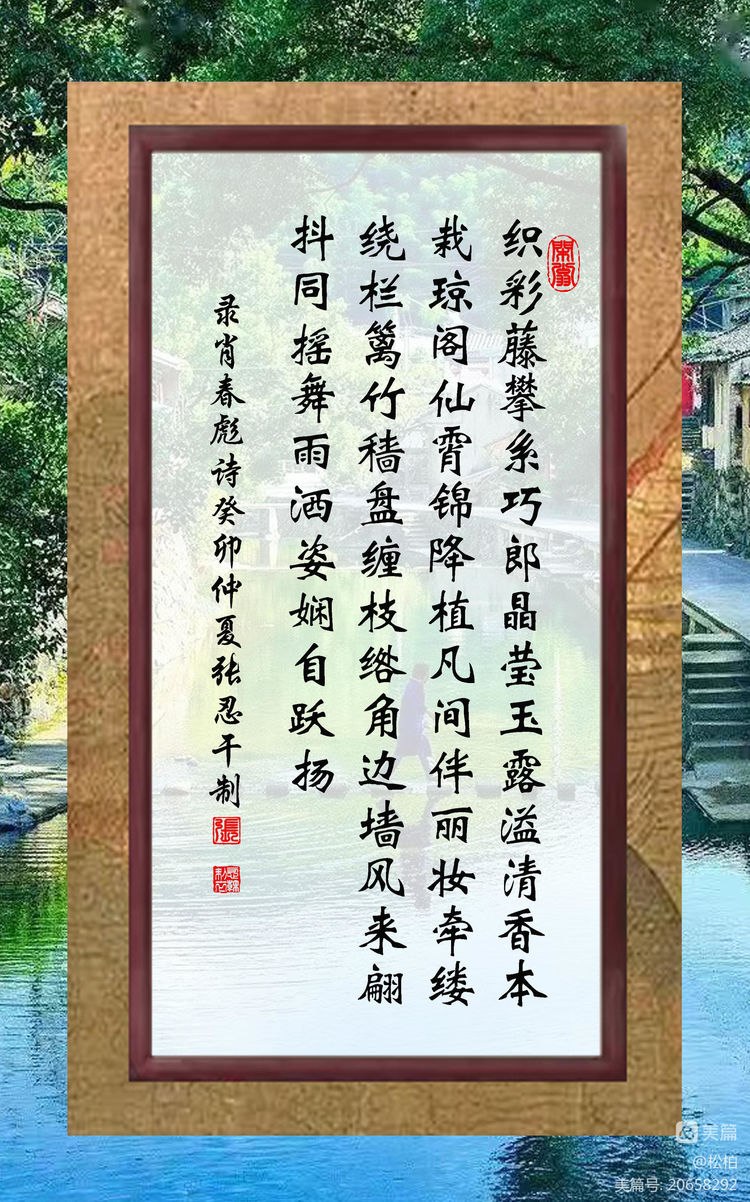 织彩藤攀系巧郎晶莹玉露溢清香本
栽琼阁仙霄锦降植凡间伴丽妆牵缕
绕栏篱竹穑盘缠枝绺角边墙风来翩
抖同摇舞雨洒姿娴自跃扬
录肖春彪诗癸卯仲夏张忍干制
張
美篇
@松柏
美篇号: 20658292